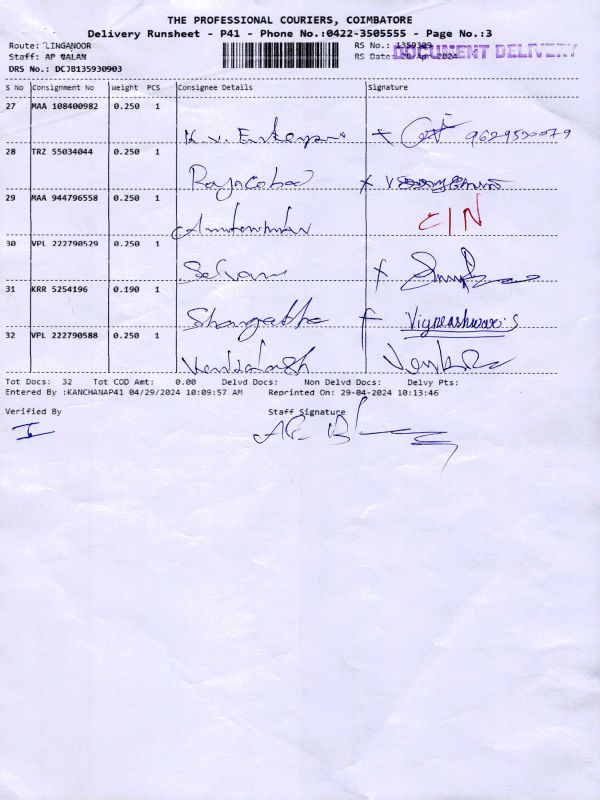 THE PROFESSIONAL COURIERS, COIMBATORE
Delivery Runsheet - P41 - Phone No.:0422-3505555 - Page No.:3
Route: LINGANOOR RS No.: 1359309
Staff: AP BALAN RS Date: 2024 DOCUMENT DELIVERY
DRS No.: DCJB135930903
S No Consignment No Weight PCS Consignee Details Signature
27 MAA 108400982 0.250 1
K. V.
28 TRZ 55034044 0.250 1
29 MAA 944796558 0.250 1
C/N
30 VPL 222790529 0.250 1
Selvam
31 KRR 5254196 0.190 1
Vigneashwari.S
32 VPL 222790588 0.250 1
Venkatesh
Tot Docs: 32 Tot COD Amt: 0.00 Delvd Docs: Non Delvd Docs: Delvy Pts:
Entered By :KANCHANAP41 04/29/2024 10:09:57 AM Reprinted On: 29-04-2024 10:13:46
Verified By Staff Signature